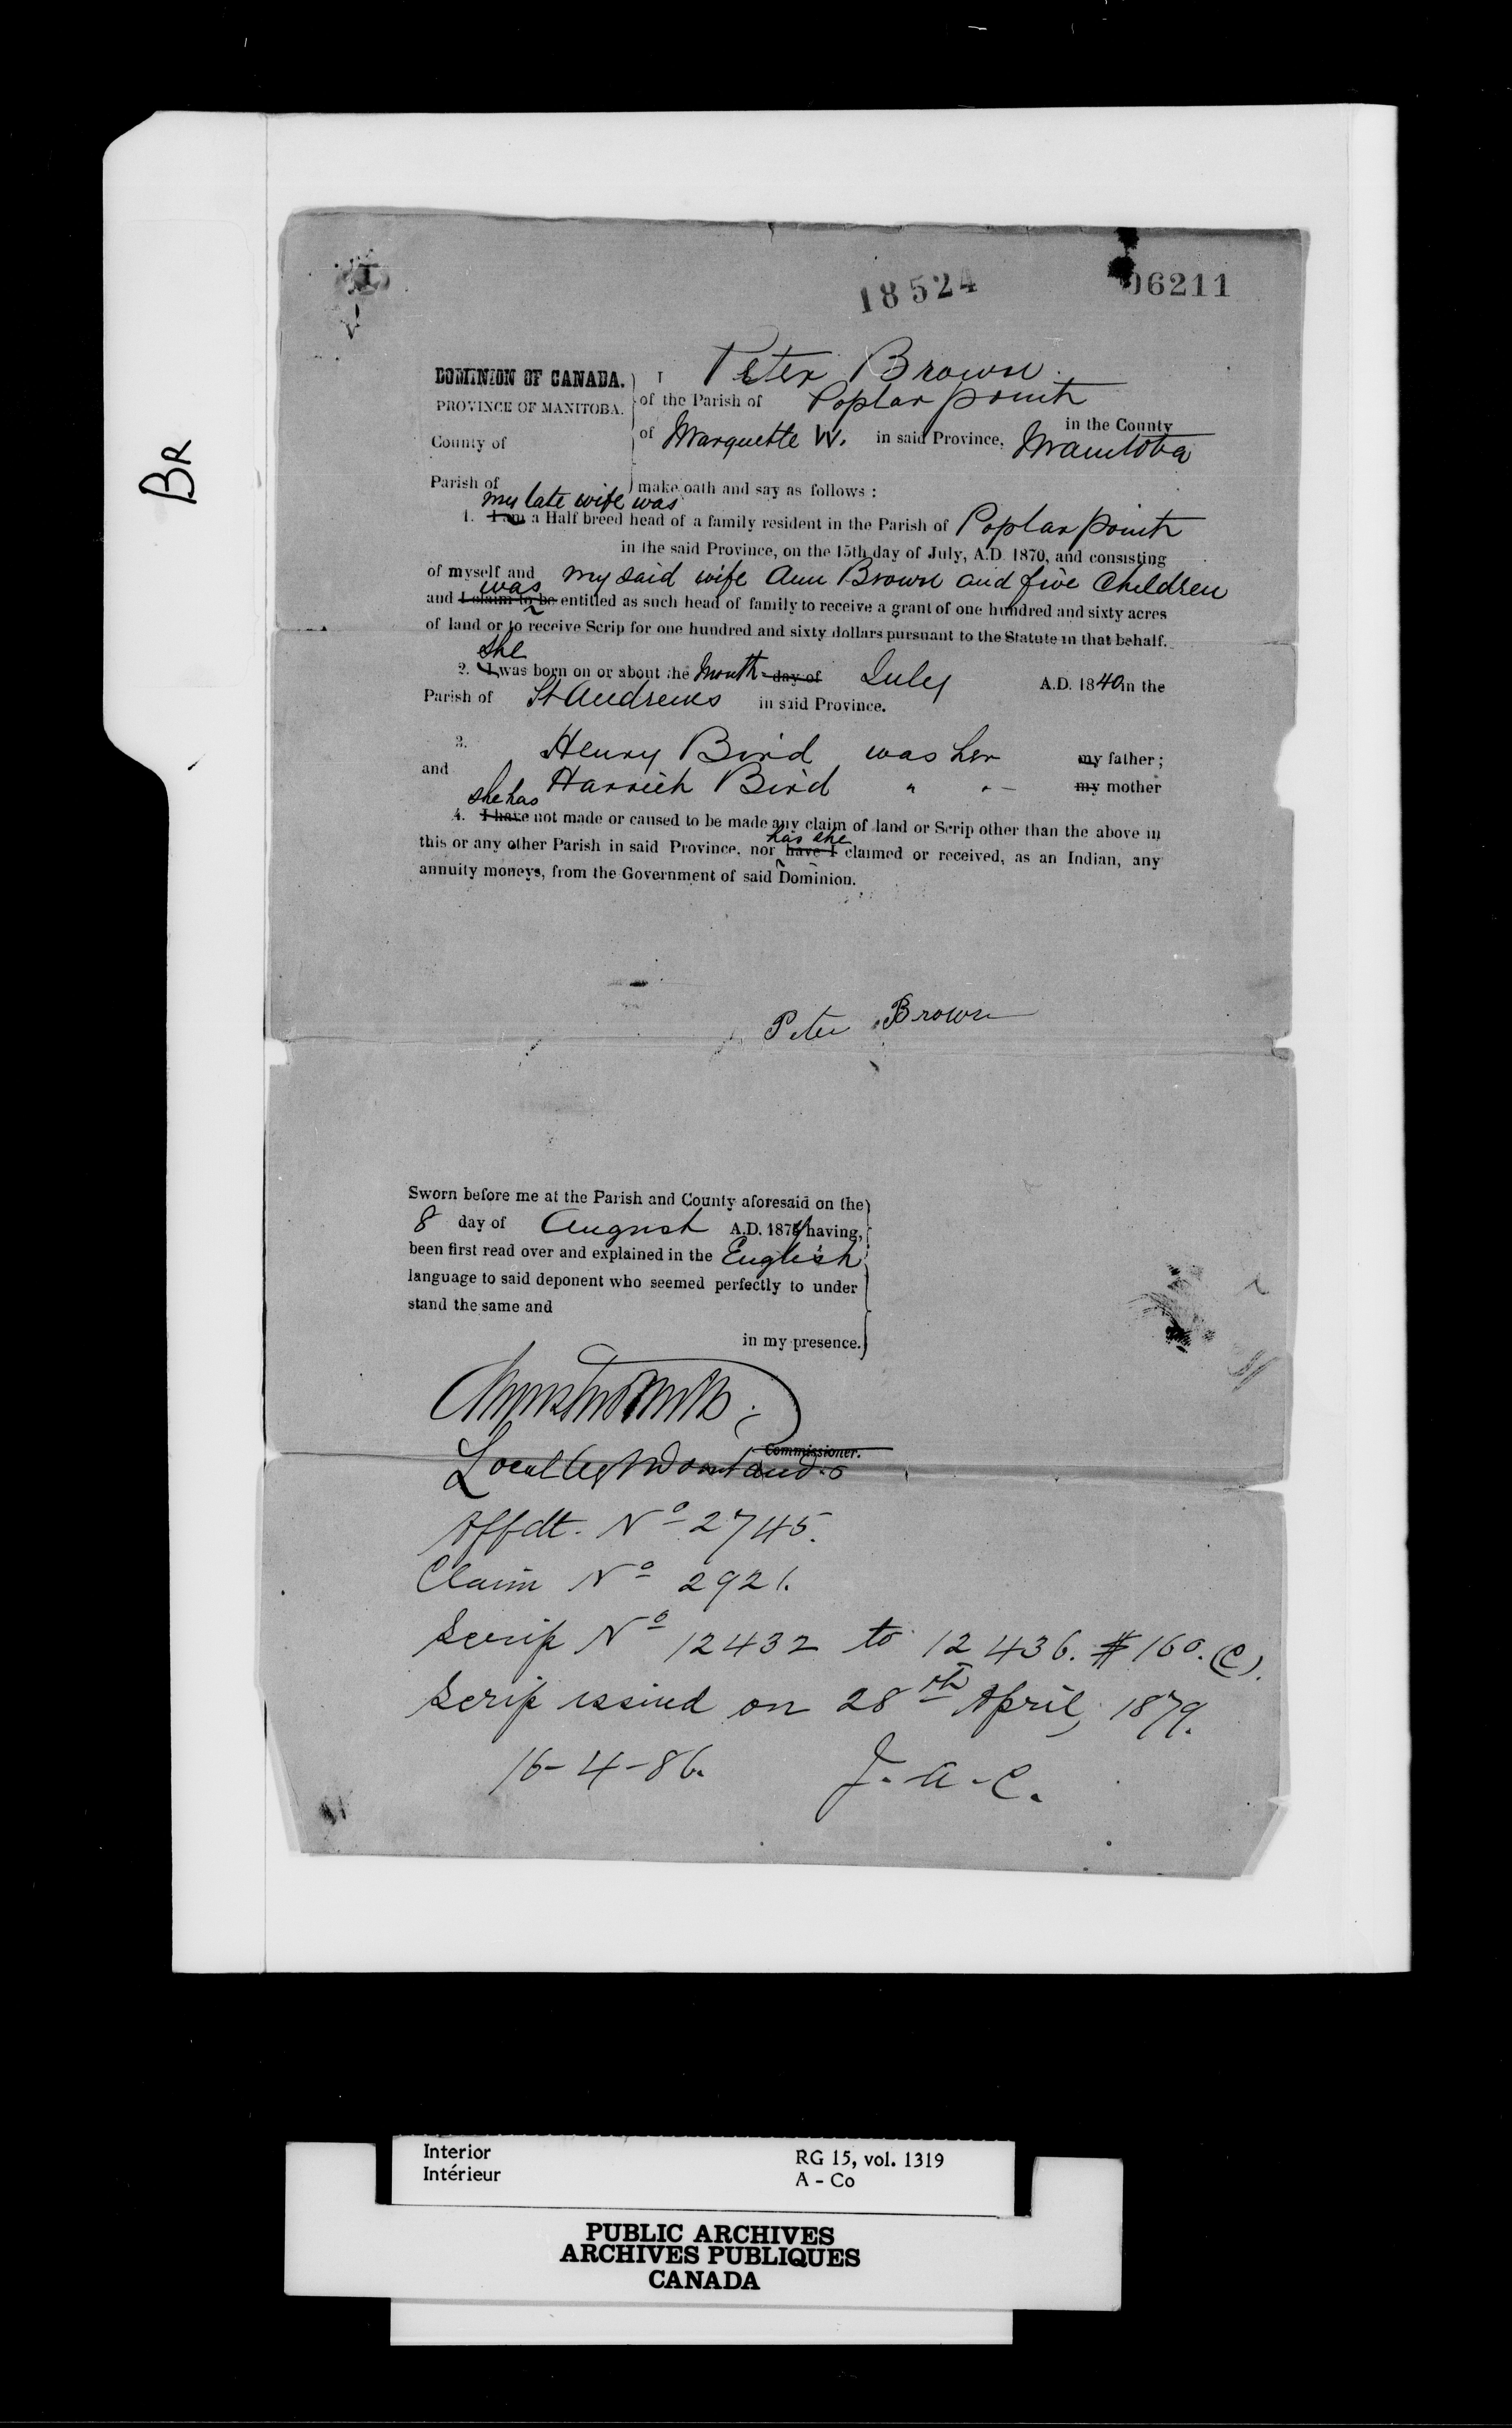 BR
18524
06211
Peter Brown.
DOMINION OF CANADA. I
PROVINCE OF MANITOBA. of the Parish of Poplar point
in the County
County of of Marquette W. in said Province, Manitoba
Parish of make oath and say as follows :
my late wife was
1. I am a Half breed head of a family resident in the Parish of Poplar point
in the said Province, on the 15th day of July, A.D. 1870, and consisting
of myself and my said wife Ann Brown and five Children
was
and I claim to be entitled as such head of family to receive a grant of one hundred and sixty acres
of land or to receive Scrip for one hundred and sixty dollars pursuant to the Statute in that behalf.
she
2. I was born on or about the Month day of July A.D. 1840 in the
Parish of St Andrews in said Province.
3. Henry Bird was her my father ;
and Harriet Bird " " my mother
she has
4. I have not made or caused to be made any claim of land or Scrip other than the above in
has she
this or any other Parish in said Province, nor have I claimed or received, as an Indian, any
annuity moneys, from the Government of said Dominion.
Peter Brown
Sworn before me at the Parish and County aforesaid on the
8 day of August A.D. 187 having,
been first read over and explained in the English
language to said deponent who seemed perfectly to under
stand the same and
in my presence.
Commissioner.
Affdt. No 2745.
Claim No 2921.
Scrip No 12432 to 12436. $160. (C).
Scrip issued on 28th April, 1879.
16-4-86. J.A.C.
Interior RG 15, vol. 1319
Intérieur A - Co
PUBLIC ARCHIVES
ARCHIVES PUBLIQUES
CANADA